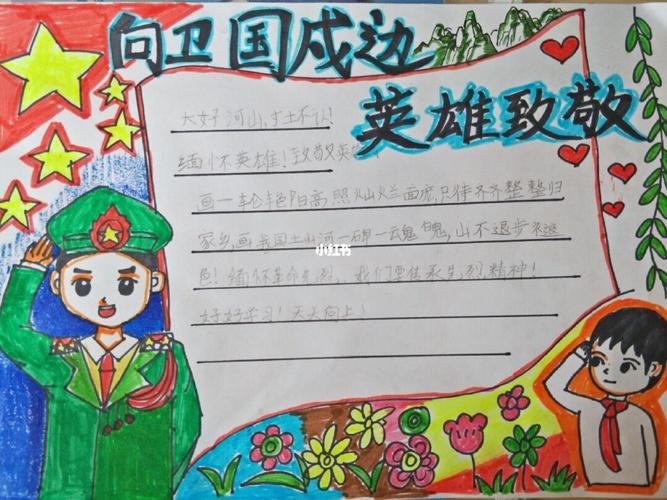 向卫国戍边
英雄致敬
大好河山,寸土不让!
缅怀英雄!致敬英
画一轮艳阳高照灿烂面庞,只待齐齐整整归
家乡,画我国土山河一碑一云魂魄,山不退步不退
小红书
色!缅怀革命先烈,我们要传承先烈精神!
好好学习!天天向上!